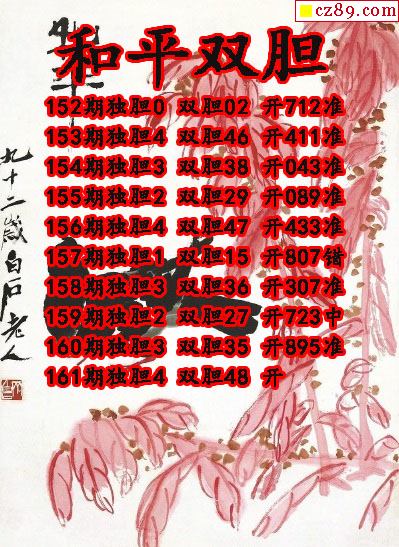 cz89.com
和平双胆
152期独胆0 双胆02 开712准
153期独胆4 双胆46 开411准
154期独胆3 双胆38 开043准
155期独胆2 双胆29 开089准
156期独胆4 双胆47 开433准
157期独胆1 双胆15 开807错
158期独胆3 双胆36 开307准
159期独胆2 双胆27 开723中
160期独胆3 双胆35 开895准
161期独胆4 双胆48 开
九十二岁白石老人